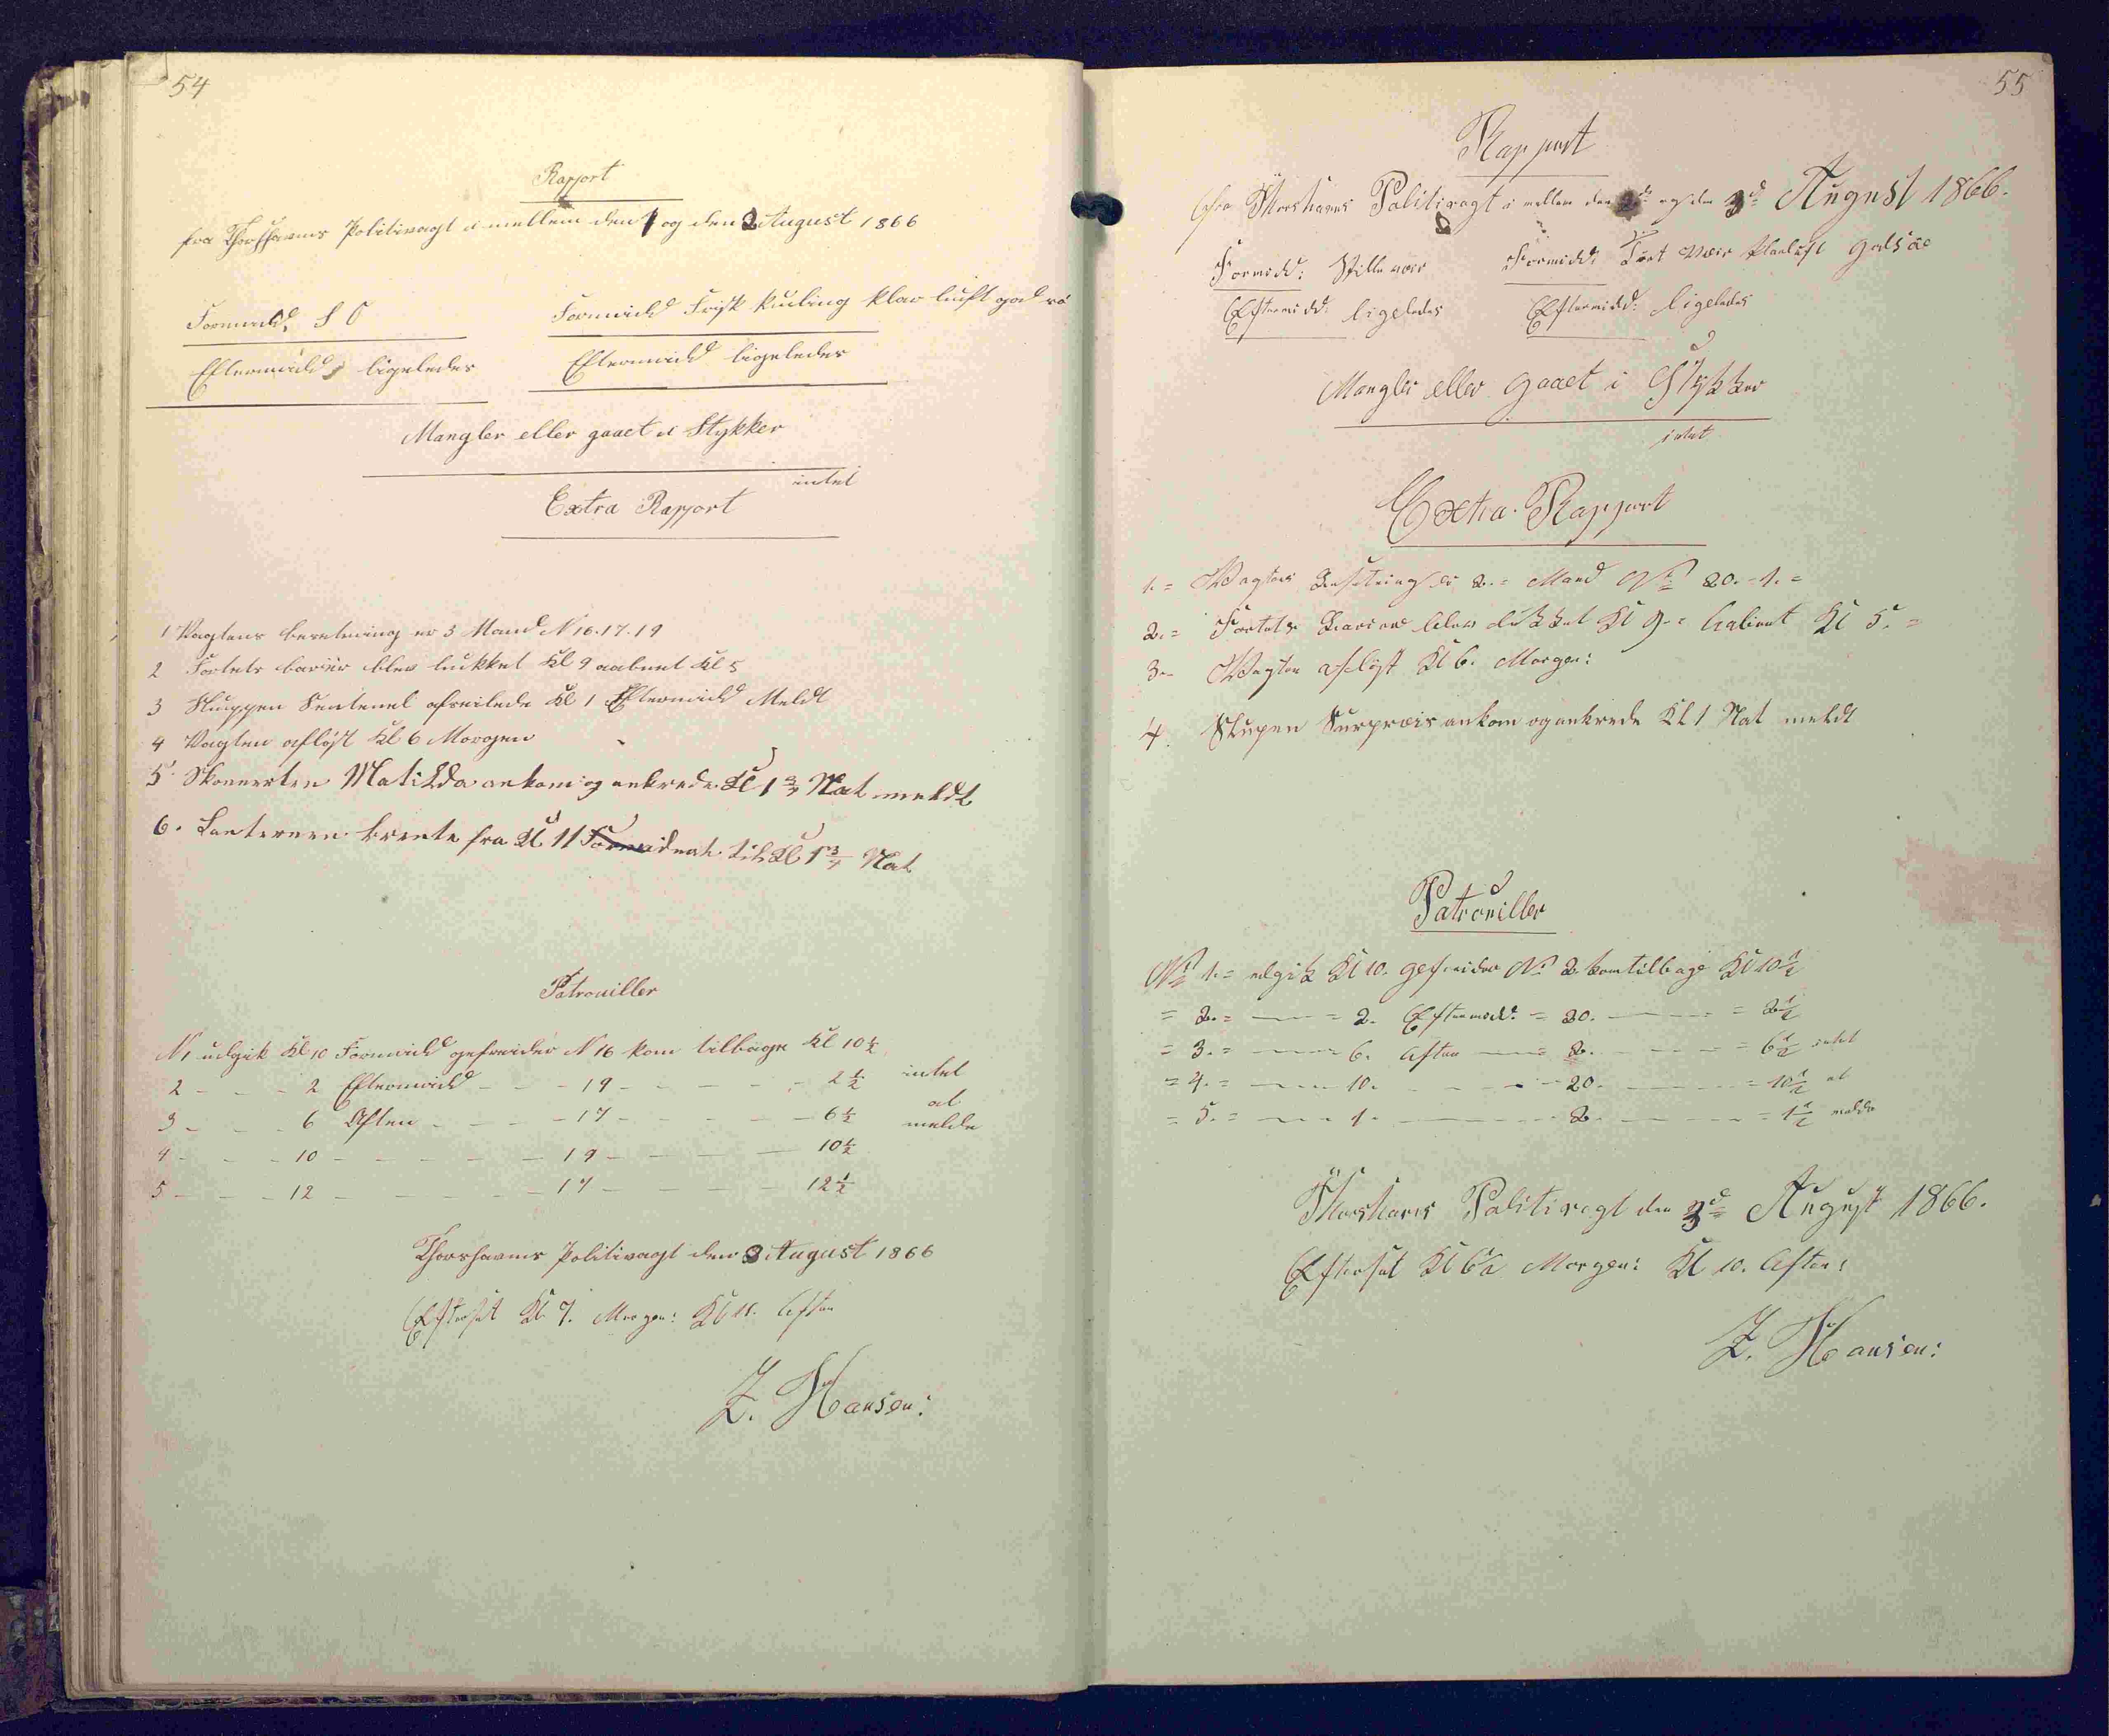 54
Rapport
fra Thorshavns Politivagt i mellem den 1 og den 2 August 1866
Formidd. S O
Formidd Frisk Kuling klar luft god sö
Eftermidd ligeledes
Eftermidd ligeledes
Mangler eller gaaet i Stykker
intet
Extra Rapport
1 Vagtens besetning er 3 Mand N 16.17.19
2 Fortets bariër blev lukket Kl 9 aabnet Kl 5
3 Sluppen Sentenel afseilede Kl 1 Eftermidd Meldt
4 Vagten aflöst Kl 6 Morgen
5. Skonnerten Matilda ankom og ankrede Kl 1 3/4 Nat meldt
6. Lanternen brente fra Kl 11 til Kl 1 3/4 Nat
Patrouiller
N 1 udgik Kl 10 Formidd gefreider N 16 kom tilbage Kl 10 1/2
2 - - - 2 Eftermidd - - - 19 - - - - - 2 1/2 intet
3 - - - 6 Aften - - - 17 - - - - - 6 1/2 at melde
4 - - - 10 - - - - - - 19 - - - - - 10 1/2
5 - - - 12 - - - - - - 17 - - - - - 12 1/2
Thorshavns Politivagt den 3 August 1866
Eftersét Kl. 7. Morgen: Kl 11. Aften
Z. Hansen:
55
Rapport
fra Thorshavns Politivagt i mellem den 2de og den 3de August 1866.
Formidd: Stille vær
Formidd: Tört Vær klarluft god söe
Eftermidd: ligeledes
Eftermidd: ligeledes
Mangler eller gaaet i Stykker
intet
Extra Rapport
1. = Vagtens Besetning er 2. = Mand No 20. - 1. =
2. = Fortets Bariere blev lukket Kl 9 - = Kl 5. =
3 - Vagten aflöst Kl 6. Morgen:
4. Slupen Surpræis ankom og ankrede Kl 1 Nat meldt
Patrouiller
No 1. = udgik Kl 10. gefreider No 2 kom tilbage Kl 10 1/2
= 2. = --- = 2. Eftermidd: = 20. --- = 2 1/2
= 3. = --- 6. Aften --- = 2. --- = 6 1/2 intet
= 4. = --- 10. - - - - 20. --- = 10 1/2 at
= 5. = --- 1. --- 2. --- = 1 1/2 melde
Thorshavns Politivagt den 3de August 1866.
Eftersét Kl 6 1/2 Morgen: Kl 10. Aften:
Z. Hansen: